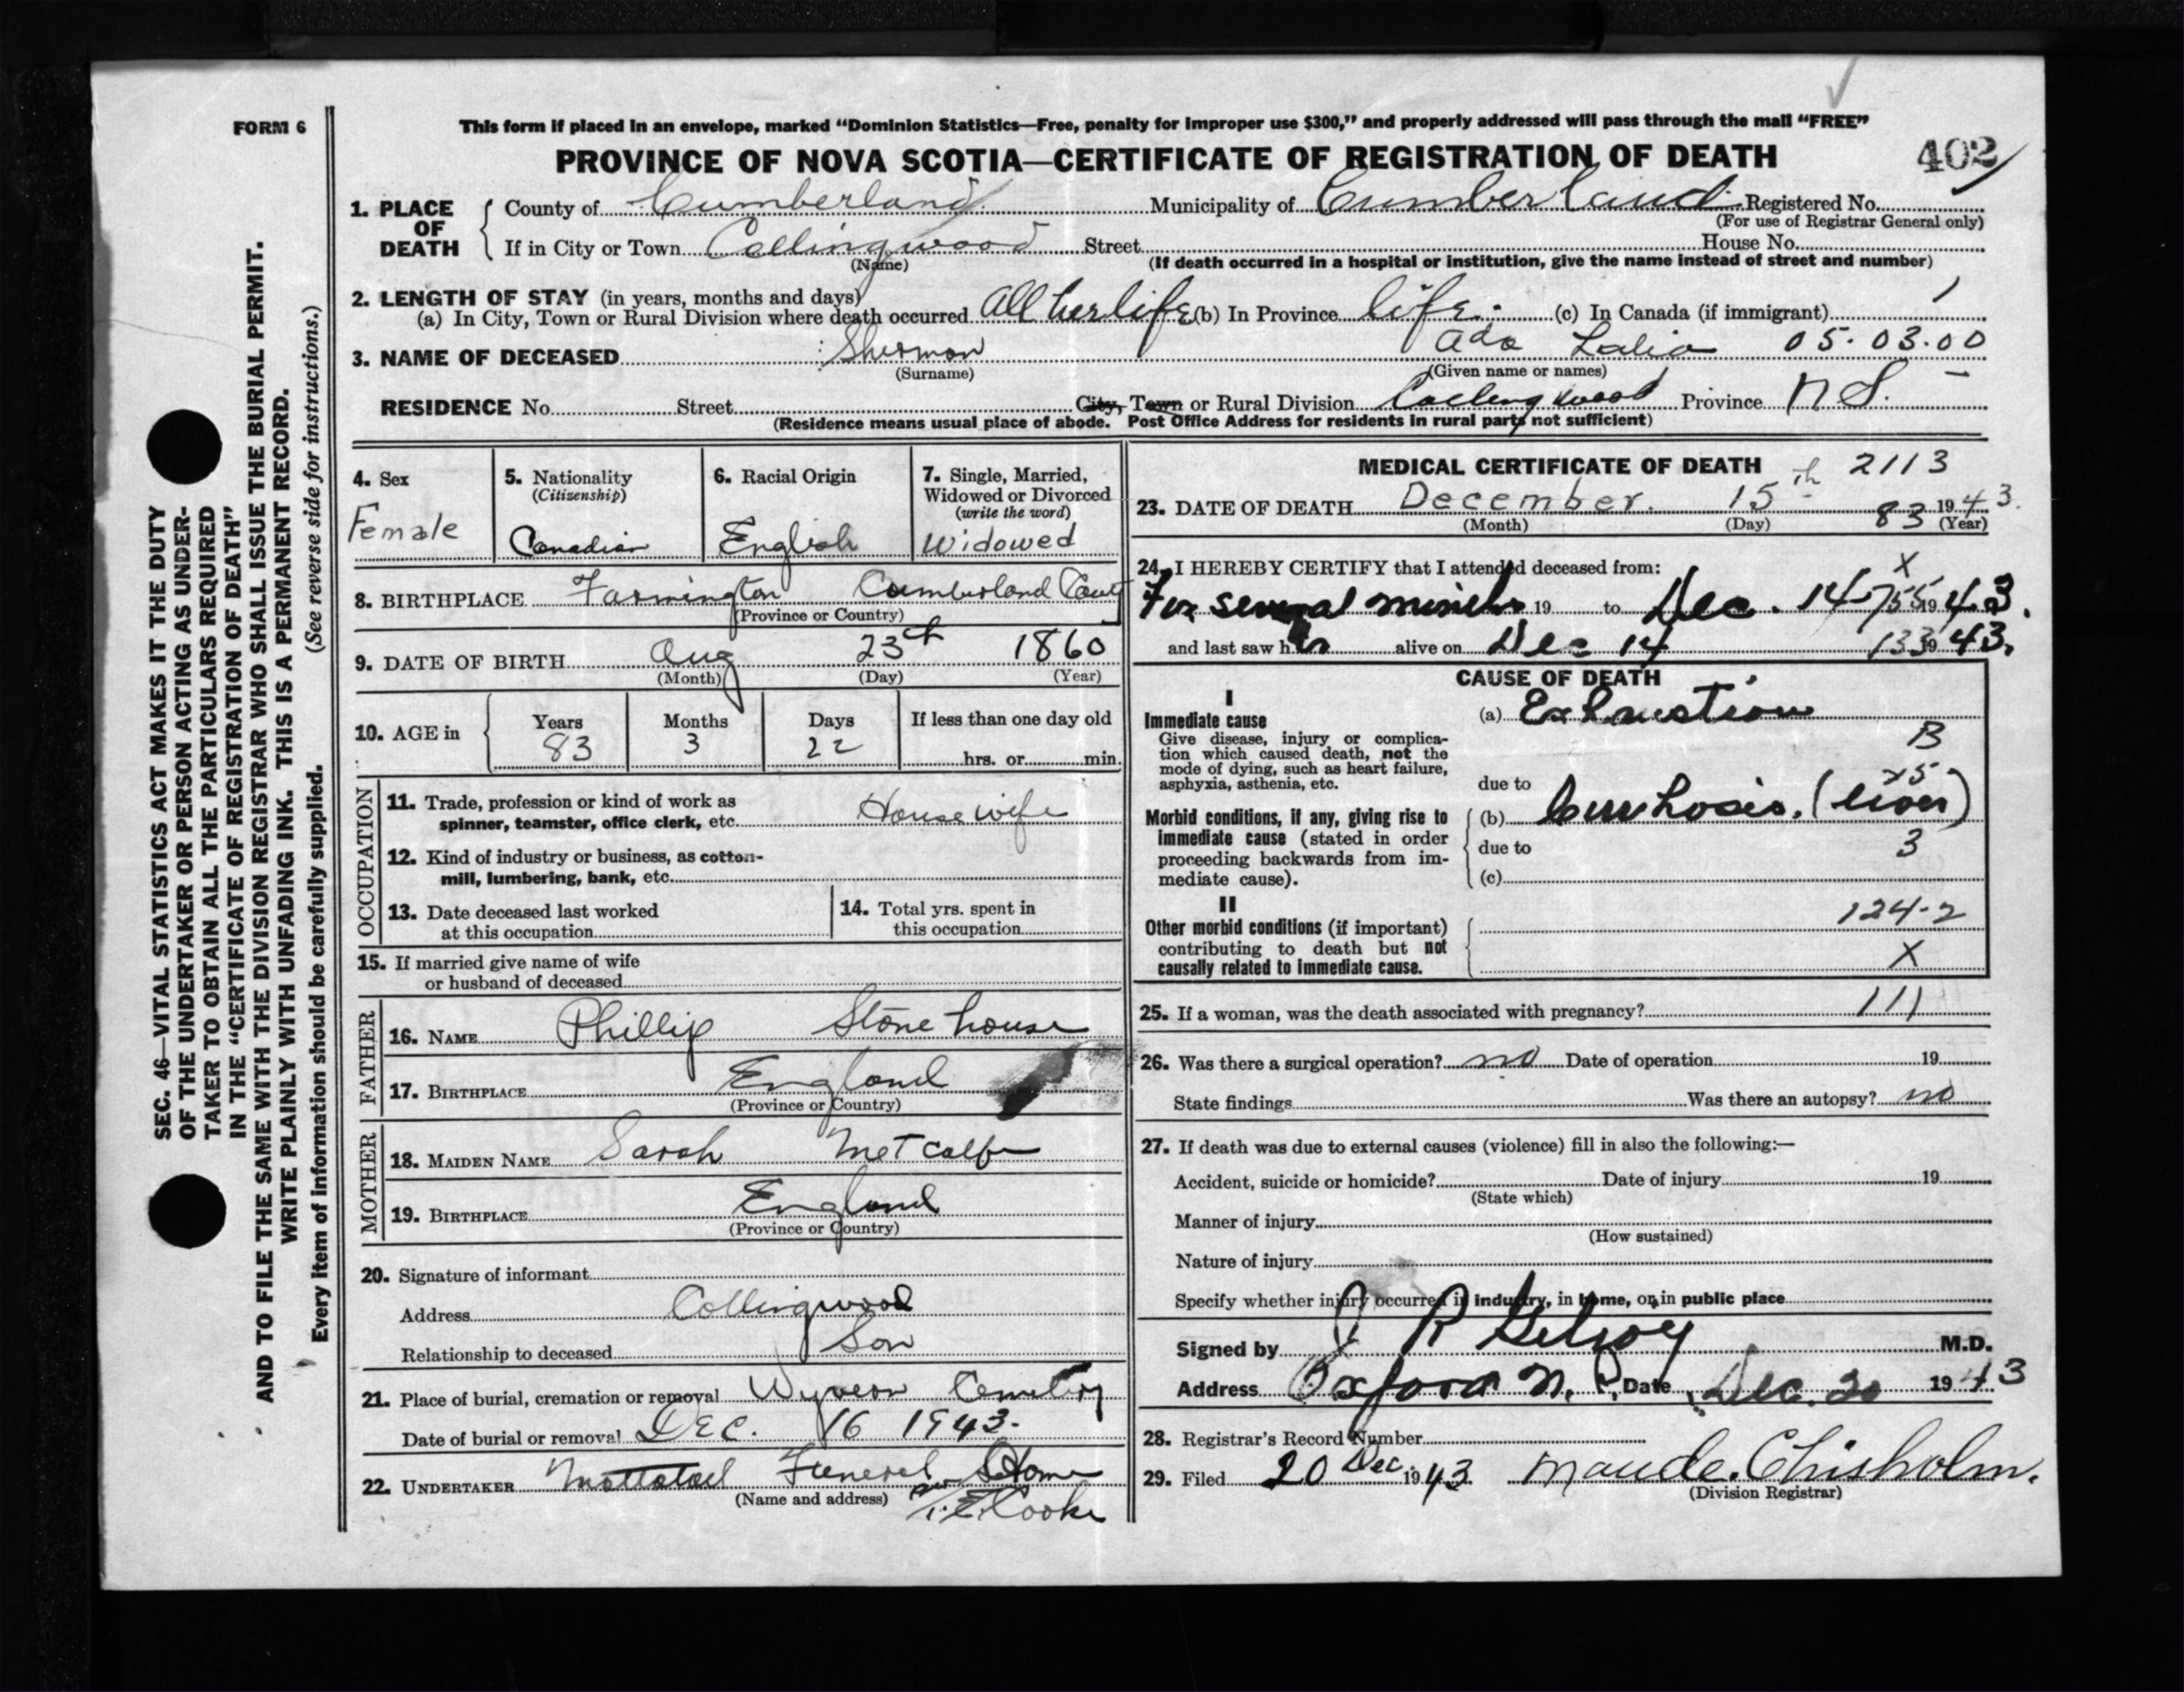 FORM 6
This form if placed in an envelope, marked “Dominion Statistics—Free, penalty for improper use $300,” and properly addressed will pass through the mail “FREE”
PROVINCE OF NOVA SCOTIA—CERTIFICATE OF REGISTRATION OF DEATH
402
1. PLACE OF DEATH
County of Cumberland Municipality of Cumberland Registered No.
(For use of Registrar General only)
If in City or Town Collingwood Street House No.
(Name) (If death occurred in a hospital or institution, give the name instead of street and number)
2. LENGTH OF STAY (in years, months and days)
(a) In City, Town or Rural Division where death occurred All her life (b) In Province life. (c) In Canada (if immigrant)
3. NAME OF DECEASED Sherman Ada Lalia 05.03.00
(Surname) (Given name or names)
RESIDENCE No. Street City, Town or Rural Division Collingwood Province N S.
(Residence means usual place of abode. Post Office Address for residents in rural parts not sufficient)
4. Sex
Female
5. Nationality
(Citizenship)
Canadian
6. Racial Origin
English
7. Single, Married,
Widowed or Divorced
(write the word)
Widowed
8. BIRTHPLACE Farmington Cumberland County
(Province or Country)
9. DATE OF BIRTH Aug 23 1860
(Month) (Day) (Year)
10. AGE in
Years Months Days If less than one day old
83 3 22 hrs. or min.
OCCUPATION
11. Trade, profession or kind of work as
spinner, teamster, office clerk, etc. Housewife
12. Kind of industry or business, as cotton-
mill, lumbering, bank, etc.
13. Date deceased last worked
at this occupation
14. Total yrs. spent in
this occupation
15. If married give name of wife
or husband of deceased
FATHER
16. NAME Phillip Stonehouse
17. BIRTHPLACE England
(Province or Country)
MOTHER
18. MAIDEN NAME Sarah Metcalfe
19. BIRTHPLACE England
(Province or Country)
20. Signature of informant
Address Collingwood
Relationship to deceased Son
21. Place of burial, cremation or removal Wyvern Cemetery
Date of burial or removal DEC. 16 1943.
22. UNDERTAKER Funeral Home
(Name and address) Cooke
MEDICAL CERTIFICATE OF DEATH 2113
23. DATE OF DEATH December. 15th 83 1943.
(Month) (Day) (Year)
24. I HEREBY CERTIFY that I attended deceased from: X
For several months 19 to Dec. 14 1943.
and last saw her alive on Dec 14 133 1943.
CAUSE OF DEATH
I
Immediate cause
Give disease, injury or complica-
tion which caused death, not the
mode of dying, such as heart failure,
asphyxia, asthenia, etc.
(a) Exhaustion
B
due to
Morbid conditions, if any, giving rise to
immediate cause (stated in order
proceeding backwards from im-
mediate cause).
(b) Cirrhosis. (liver)
due to 3
(c)
II
Other morbid conditions (if important)
contributing to death but not
causally related to immediate cause.
124-2
X
25. If a woman, was the death associated with pregnancy? 111
26. Was there a surgical operation? no Date of operation 19
State findings Was there an autopsy? no
27. If death was due to external causes (violence) fill in also the following:—
Accident, suicide or homicide? Date of injury 19
(State which)
Manner of injury
(How sustained)
Nature of injury
Specify whether injury occurred in industry, in home, or in public place
Signed by J R Gilroy M.D.
Address Oxford N. S. Date Dec. 20 1943
28. Registrar's Record Number
29. Filed 20 Dec. 1943 Maude. Chisholm.
(Division Registrar)
SEC. 46—VITAL STATISTICS ACT MAKES IT THE DUTY
OF THE UNDERTAKER OR PERSON ACTING AS UNDER-
TAKER TO OBTAIN ALL THE PARTICULARS REQUIRED
IN THE “CERTIFICATE OF REGISTRATION OF DEATH”
AND TO FILE THE SAME WITH THE DIVISION REGISTRAR WHO SHALL ISSUE THE BURIAL PERMIT.
WRITE PLAINLY WITH UNFADING INK. THIS IS A PERMANENT RECORD.
Every item of information should be carefully supplied. (See reverse side for instructions.)